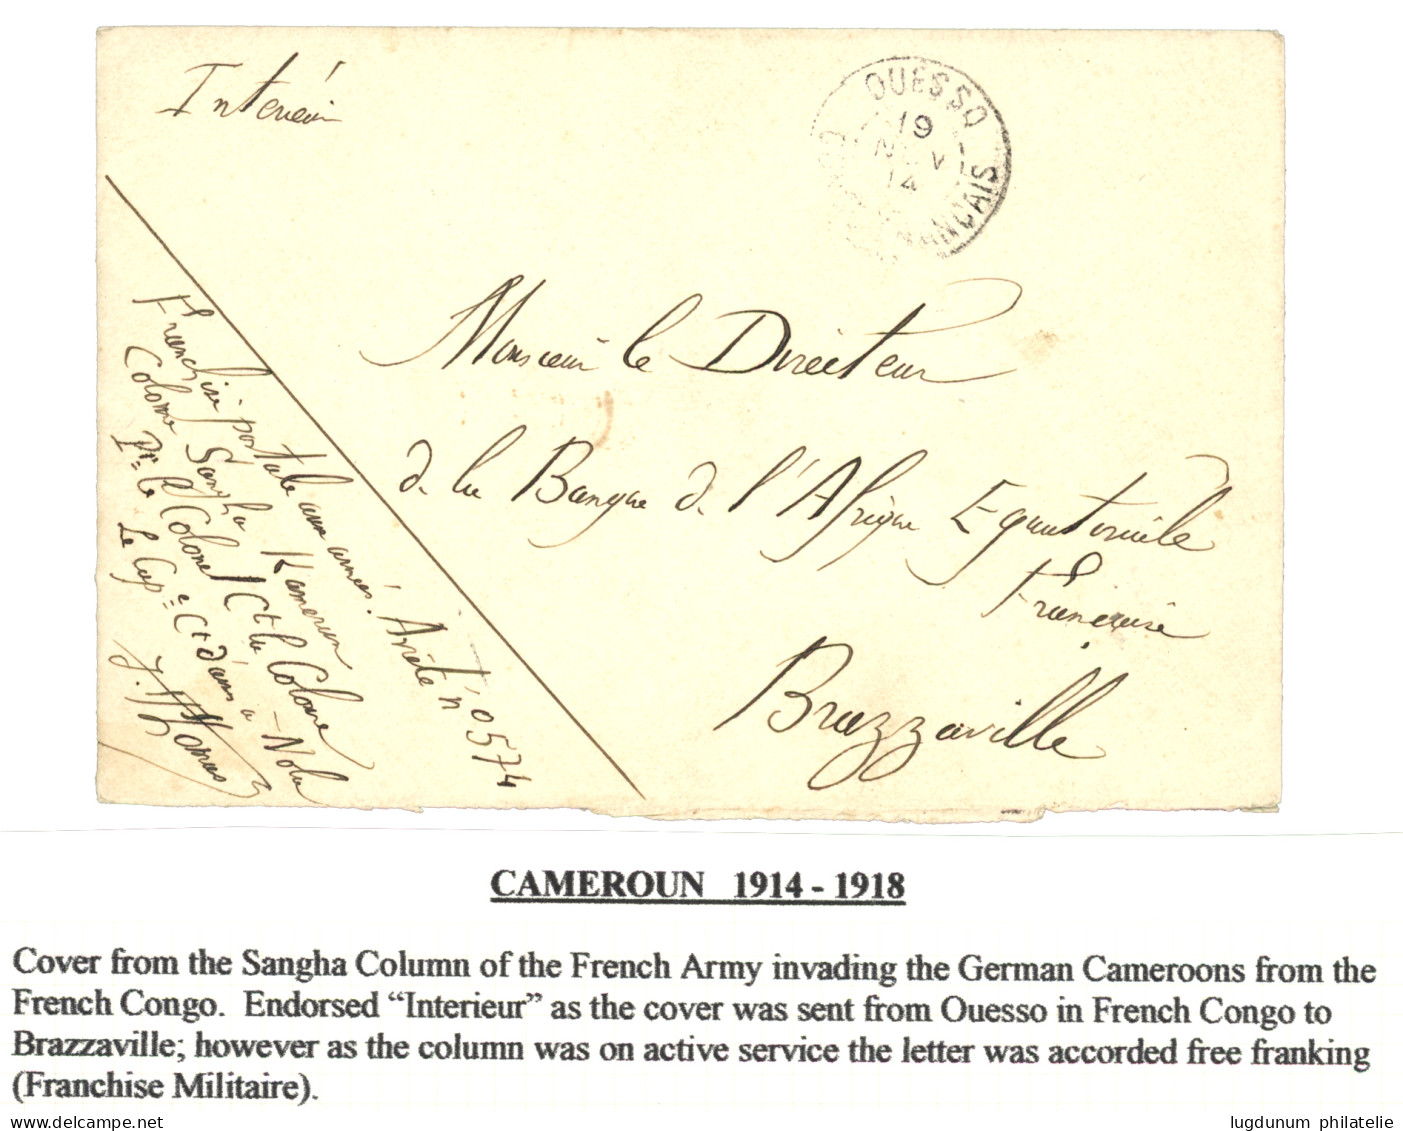 Intérieur
OUESSO
19
NOV
14
CONGO FRANCAIS
Monsieur le Directeur
de la Banque de l'Afrique Equatoriale
Française
Brazzaville
Franchise postale aux armées. Arrêté n° 574
Colonne Sangha Kameroun
Pr. le Colonel Ct la Colonne
Le Cap.e Ct d'armes à Nola
J. Thomas
CAMEROUN 1914 - 1918
Cover from the Sangha Column of the French Army invading the German Cameroons from the
French Congo. Endorsed “Interieur” as the cover was sent from Ouesso in French Congo to
Brazzaville; however as the column was on active service the letter was accorded free franking
(Franchise Militaire).
www.delcampe.net
lugdunum philatelie